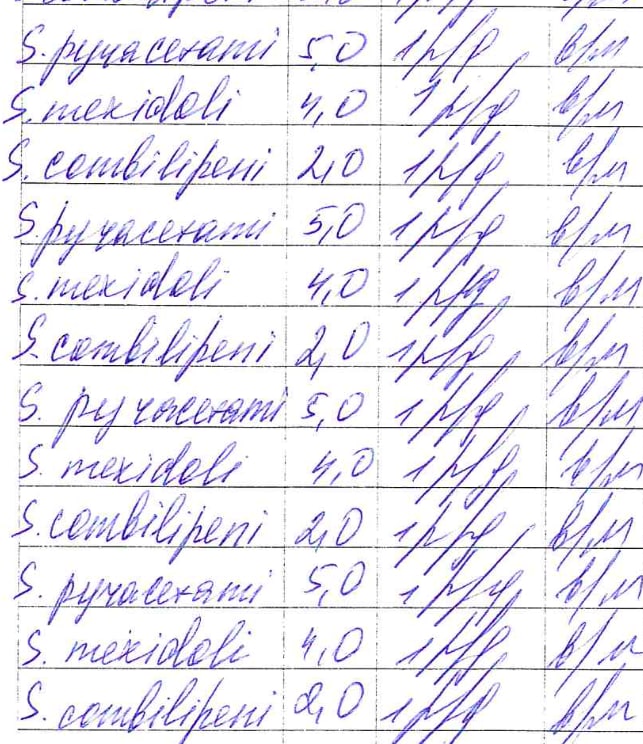 S. pyracetami 5,0 1 р/д, в/м
S. mexidoli 4,0 1 р/д в/м
S. combilipeni 2,0 1 р/д в/м
S. pyracetami 5,0 1 р/д в/м
S. mexidoli 4,0 1 р/д, в/м
S. combilipeni 2,0 1 р/д, в/м
S. pyracetami 5,0 1 р/д, в/м
S. mexidoli 4,0 1 р/д, в/м
S. combilipeni 2,0 1 р/д, в/м
S. pyracetami 5,0 1 р/д, в/м
S. mexidoli 4,0 1 р/д, в/м
S. combilipeni 2,0 1 р/д в/м